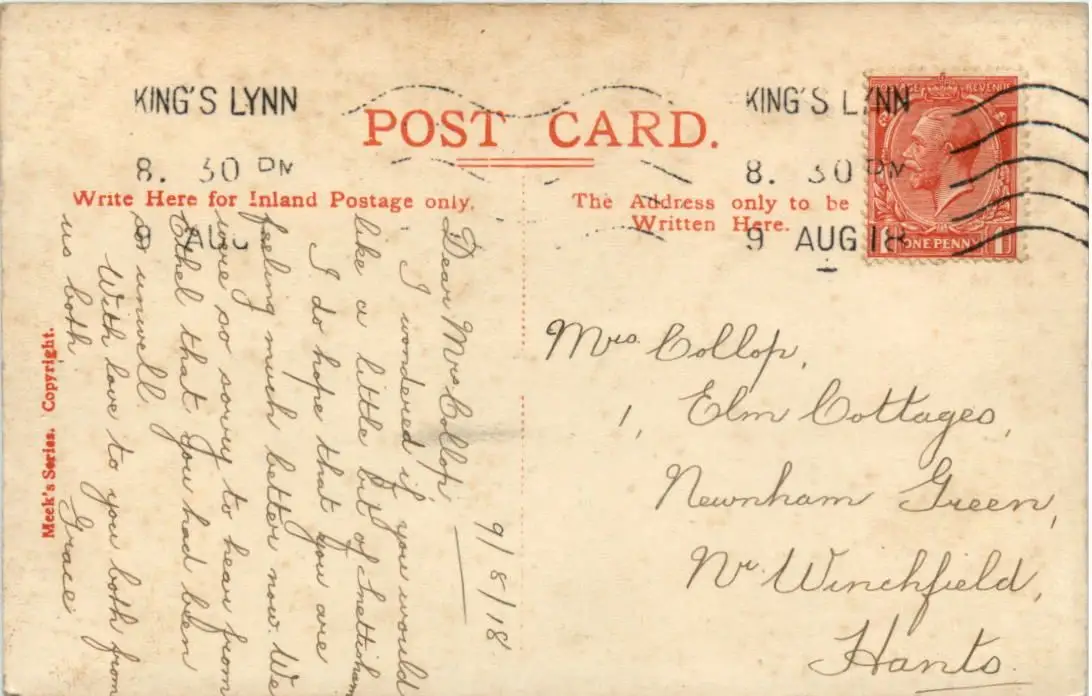 KING'S LYNN
8. 30 PM
9 AUG
POST CARD.
KING'S LYNN
8. 30 PM
9 AUG 18
POSTAGE REVENUE
1 ONE PENNY 1
Write Here for Inland Postage only.
The Address only to be
Written Here.
9/8/18
Dear Mrs Collop
I wondered if you would
like a little bit of Snettisham
I do hope that you are
feeling much better now. We
were so sorry to hear from
Ethel that you had been
so unwell.
With love to you both from
us both
Grace.
Meek's Series. Copyright.
Mrs. Collop,
1, Elm Cottages,
Newnham Green,
Nr. Winchfield,
Hants.